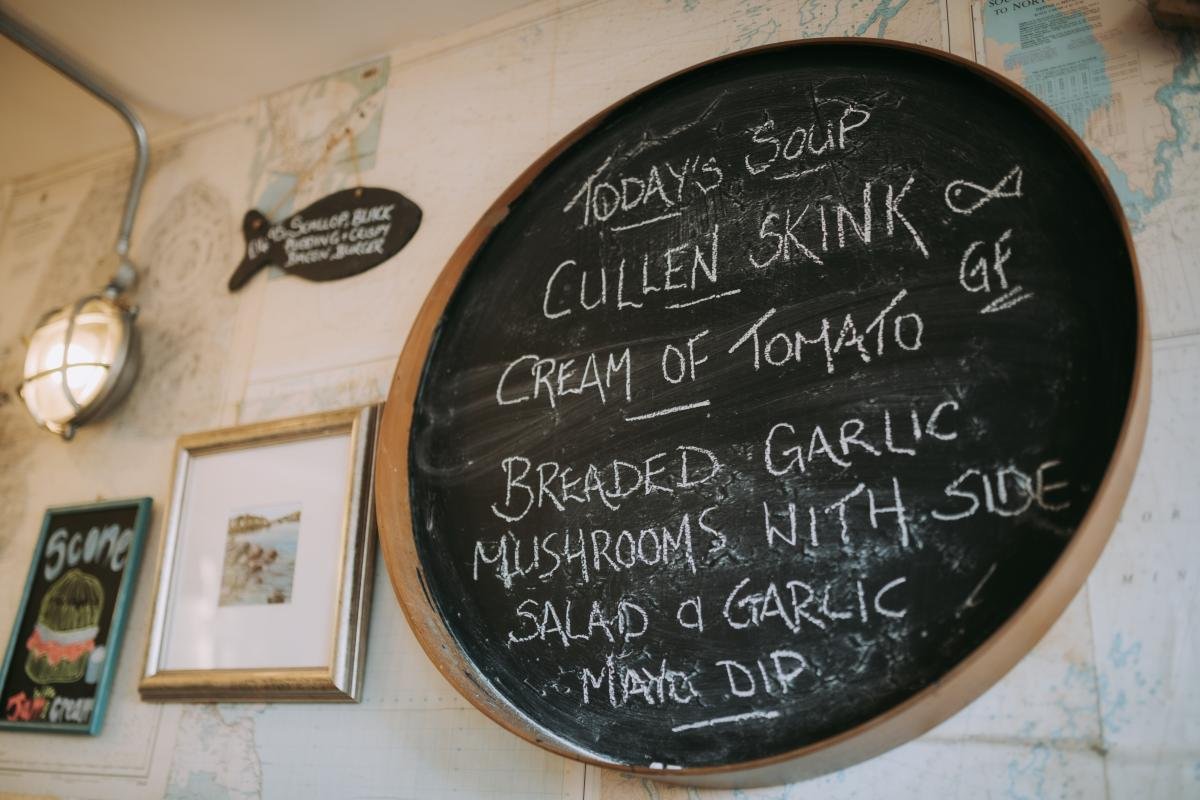 Today's Soup
CULLEN SKINK
GF
CREAM OF TOMATO
BREADED GARLIC
MUSHROOMS WITH SIDE
SALAD & GARLIC
MAYO DIP
SCALLOP, BLACK
PUDDING + CRISPY
BACON BURGER
Scone
with
Jam + Cream
TO NORTH